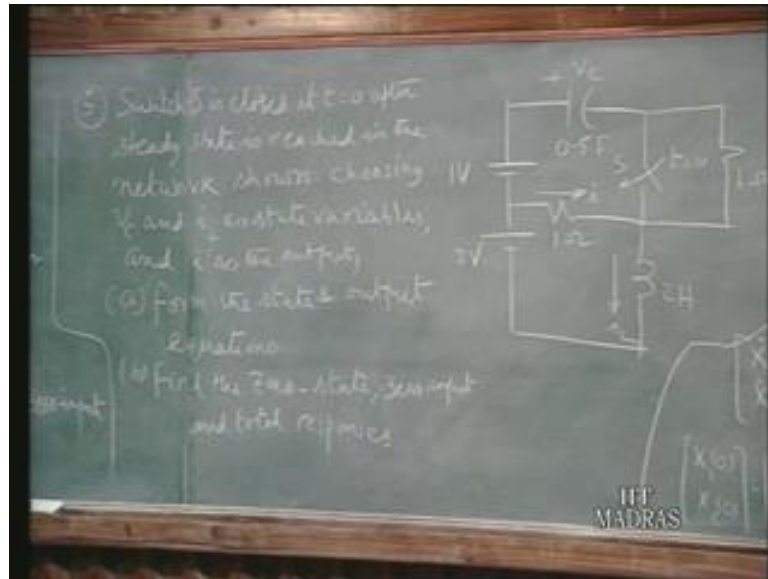 (5) Switch S is closed at t=0 after
steady state is reached in the
network shown choosing
Vc and iL as state variables,
and i as the output,
(a) form the state & output
equations
(b) find the zero-state, zero input
and total responses
+ Vc
0.5F
S
t=0
1V
i
1Ω
2H
IIT
MADRAS